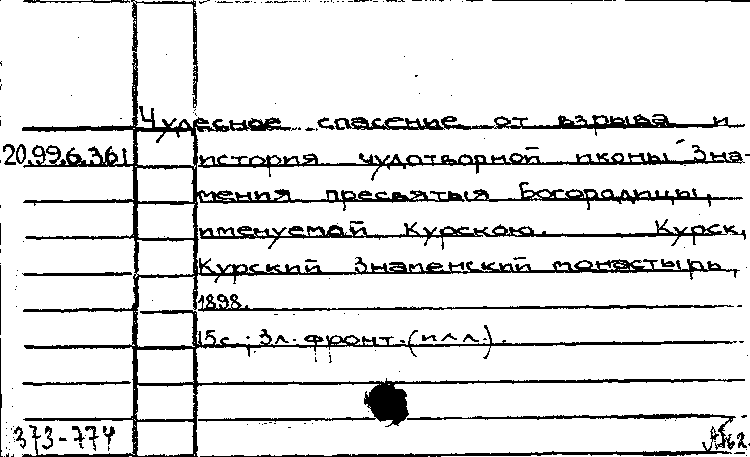 Чудесное спасение от взрыва и
20.99.6.361 история чудотворной иконы Зна-
мения пресвятыя Богородицы,
именуемой Курскою. Курск,
Курский Знаменский монастырь,
1898.
15с.; 3л. фронт. (илл.).
373-774